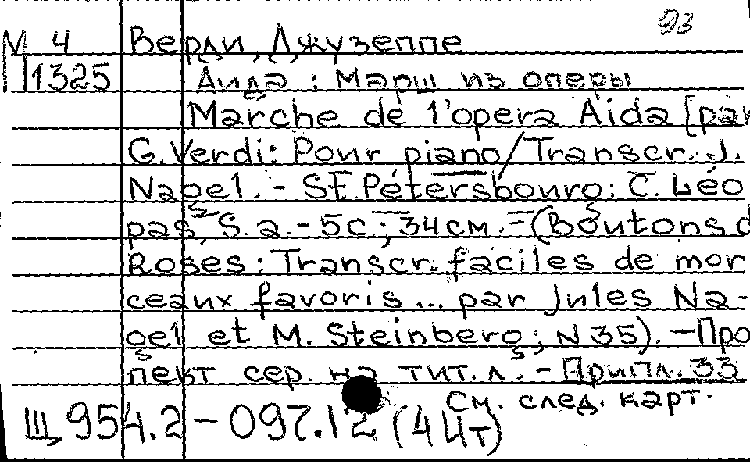 93
М 4 Верди, Джузеппе
П1325 Аида : Марш из оперы
Marche de l'opera Aida [par
G. Verdi: Pour piano / Transcr. J.
Nagel. - St. Pétersbourg: C. Léo
pas, S. a. - 5 с.; 34 см. - (Boutons d
Roses: Transcr. faciles de mor
ceaux favoris... par Jules Na-
gel et M. Steinberg; N 35). - Про
пект сер. на тит. л. - Припл. 33
См. след. карт.
Щ 954.2-097.12 (4 Ит)